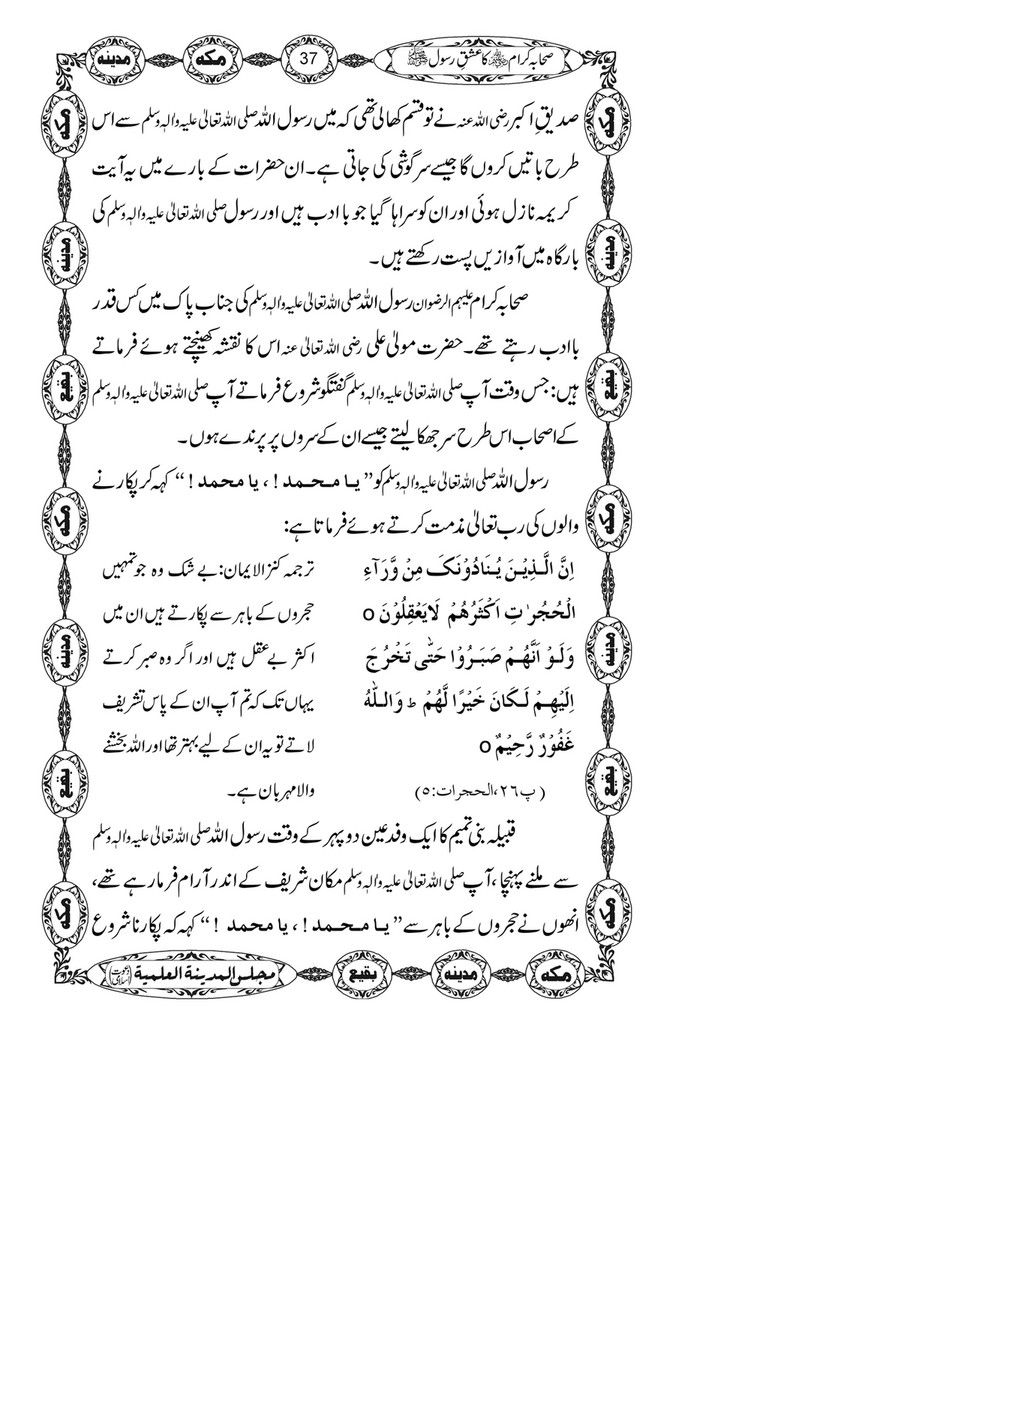 صحابہ کرام ﷺ کا عشق رسول ﷺ 37 مکہ مدینہ
صدیقِ اکبر رضی اللہ عنہ نے تو قسم کھالی تھی کہ میں رسول اللہ صلی اللہ تعالیٰ علیہ والہٖ وسلم سے اس
طرح باتیں کروں گا جیسے سرگوشی کی جاتی ہے۔ ان حضرات کے بارے میں یہ آیت
کریمہ نازل ہوئی اور ان کو سراہا گیا جو با ادب ہیں اور رسول صلی اللہ تعالیٰ علیہ والہٖ وسلم کی
بارگاہ میں آوازیں پست رکھتے ہیں۔
صحابہ کرام علیہم الرضوان رسول اللہ صلی اللہ تعالیٰ علیہ والہٖ وسلم کی جناب پاک میں کس قدر
باادب رہتے تھے۔ حضرت مولیٰ علی رضی اللہ تعالیٰ عنہ اس کا نقشہ کھینچتے ہوئے فرماتے
ہیں: جس وقت آپ صلی اللہ تعالیٰ علیہ والہٖ وسلم گفتگو شروع فرماتے آپ صلی اللہ تعالیٰ علیہ والہٖ وسلم
کے اصحاب اس طرح سر جھکا لیتے جیسے ان کے سروں پر پرندے ہوں۔
رسول اللہ صلی اللہ تعالیٰ علیہ والہٖ وسلم کو ” یا محمد !، یا محمد ! “ کہہ کر پکارنے
والوں کی رب تعالیٰ مذمت کرتے ہوئے فرماتا ہے:
اِنَّ الَّذِیْنَ یُنَادُوْنَکَ مِنْ وَّرَآءِ
الْحُجُرٰتِ اَکْثَرُھُمْ لَایَعْقِلُوْنَ o
وَلَوْ اَنَّھُمْ صَبَرُوْا حَتّٰی تَخْرُجَ
اِلَیْھِمْ لَکَانَ خَیْرًا لَّھُمْ ط وَاللّٰہُ
غَفُوْرٌ رَّحِیْمٌ o
(پ۲۶،الحجرات:۵)
ترجمہ کنزالایمان: بے شک وہ جو تمہیں
حجروں کے باہر سے پکارتے ہیں ان میں
اکثر بے عقل ہیں اور اگر وہ صبر کرتے
یہاں تک کہ تم آپ ان کے پاس تشریف
لاتے تو یہ ان کے لیے بہتر تھا اور اللہ بخشنے
والا مہربان ہے۔
قبیلہ بنی تمیم کا ایک وفد عین دوپہر کے وقت رسول اللہ صلی اللہ تعالیٰ علیہ والہٖ وسلم
سے ملنے پہنچا، آپ صلی اللہ تعالیٰ علیہ والہٖ وسلم مکان شریف کے اندر آرام فرما رہے تھے،
انھوں نے حجروں کے باہر سے ” یا محمد !، یا محمد ! “ کہہ کہ پکارنا شروع
مکہ مدینہ بقیع مجلس المدینة العلمیة (دعوتِ اسلامی)
مکہ
مدینہ
بقیع
مکہ
مدینہ
بقیع
مکہ
مکہ
مدینہ
بقیع
مکہ
مدینہ
بقیع
مکہ